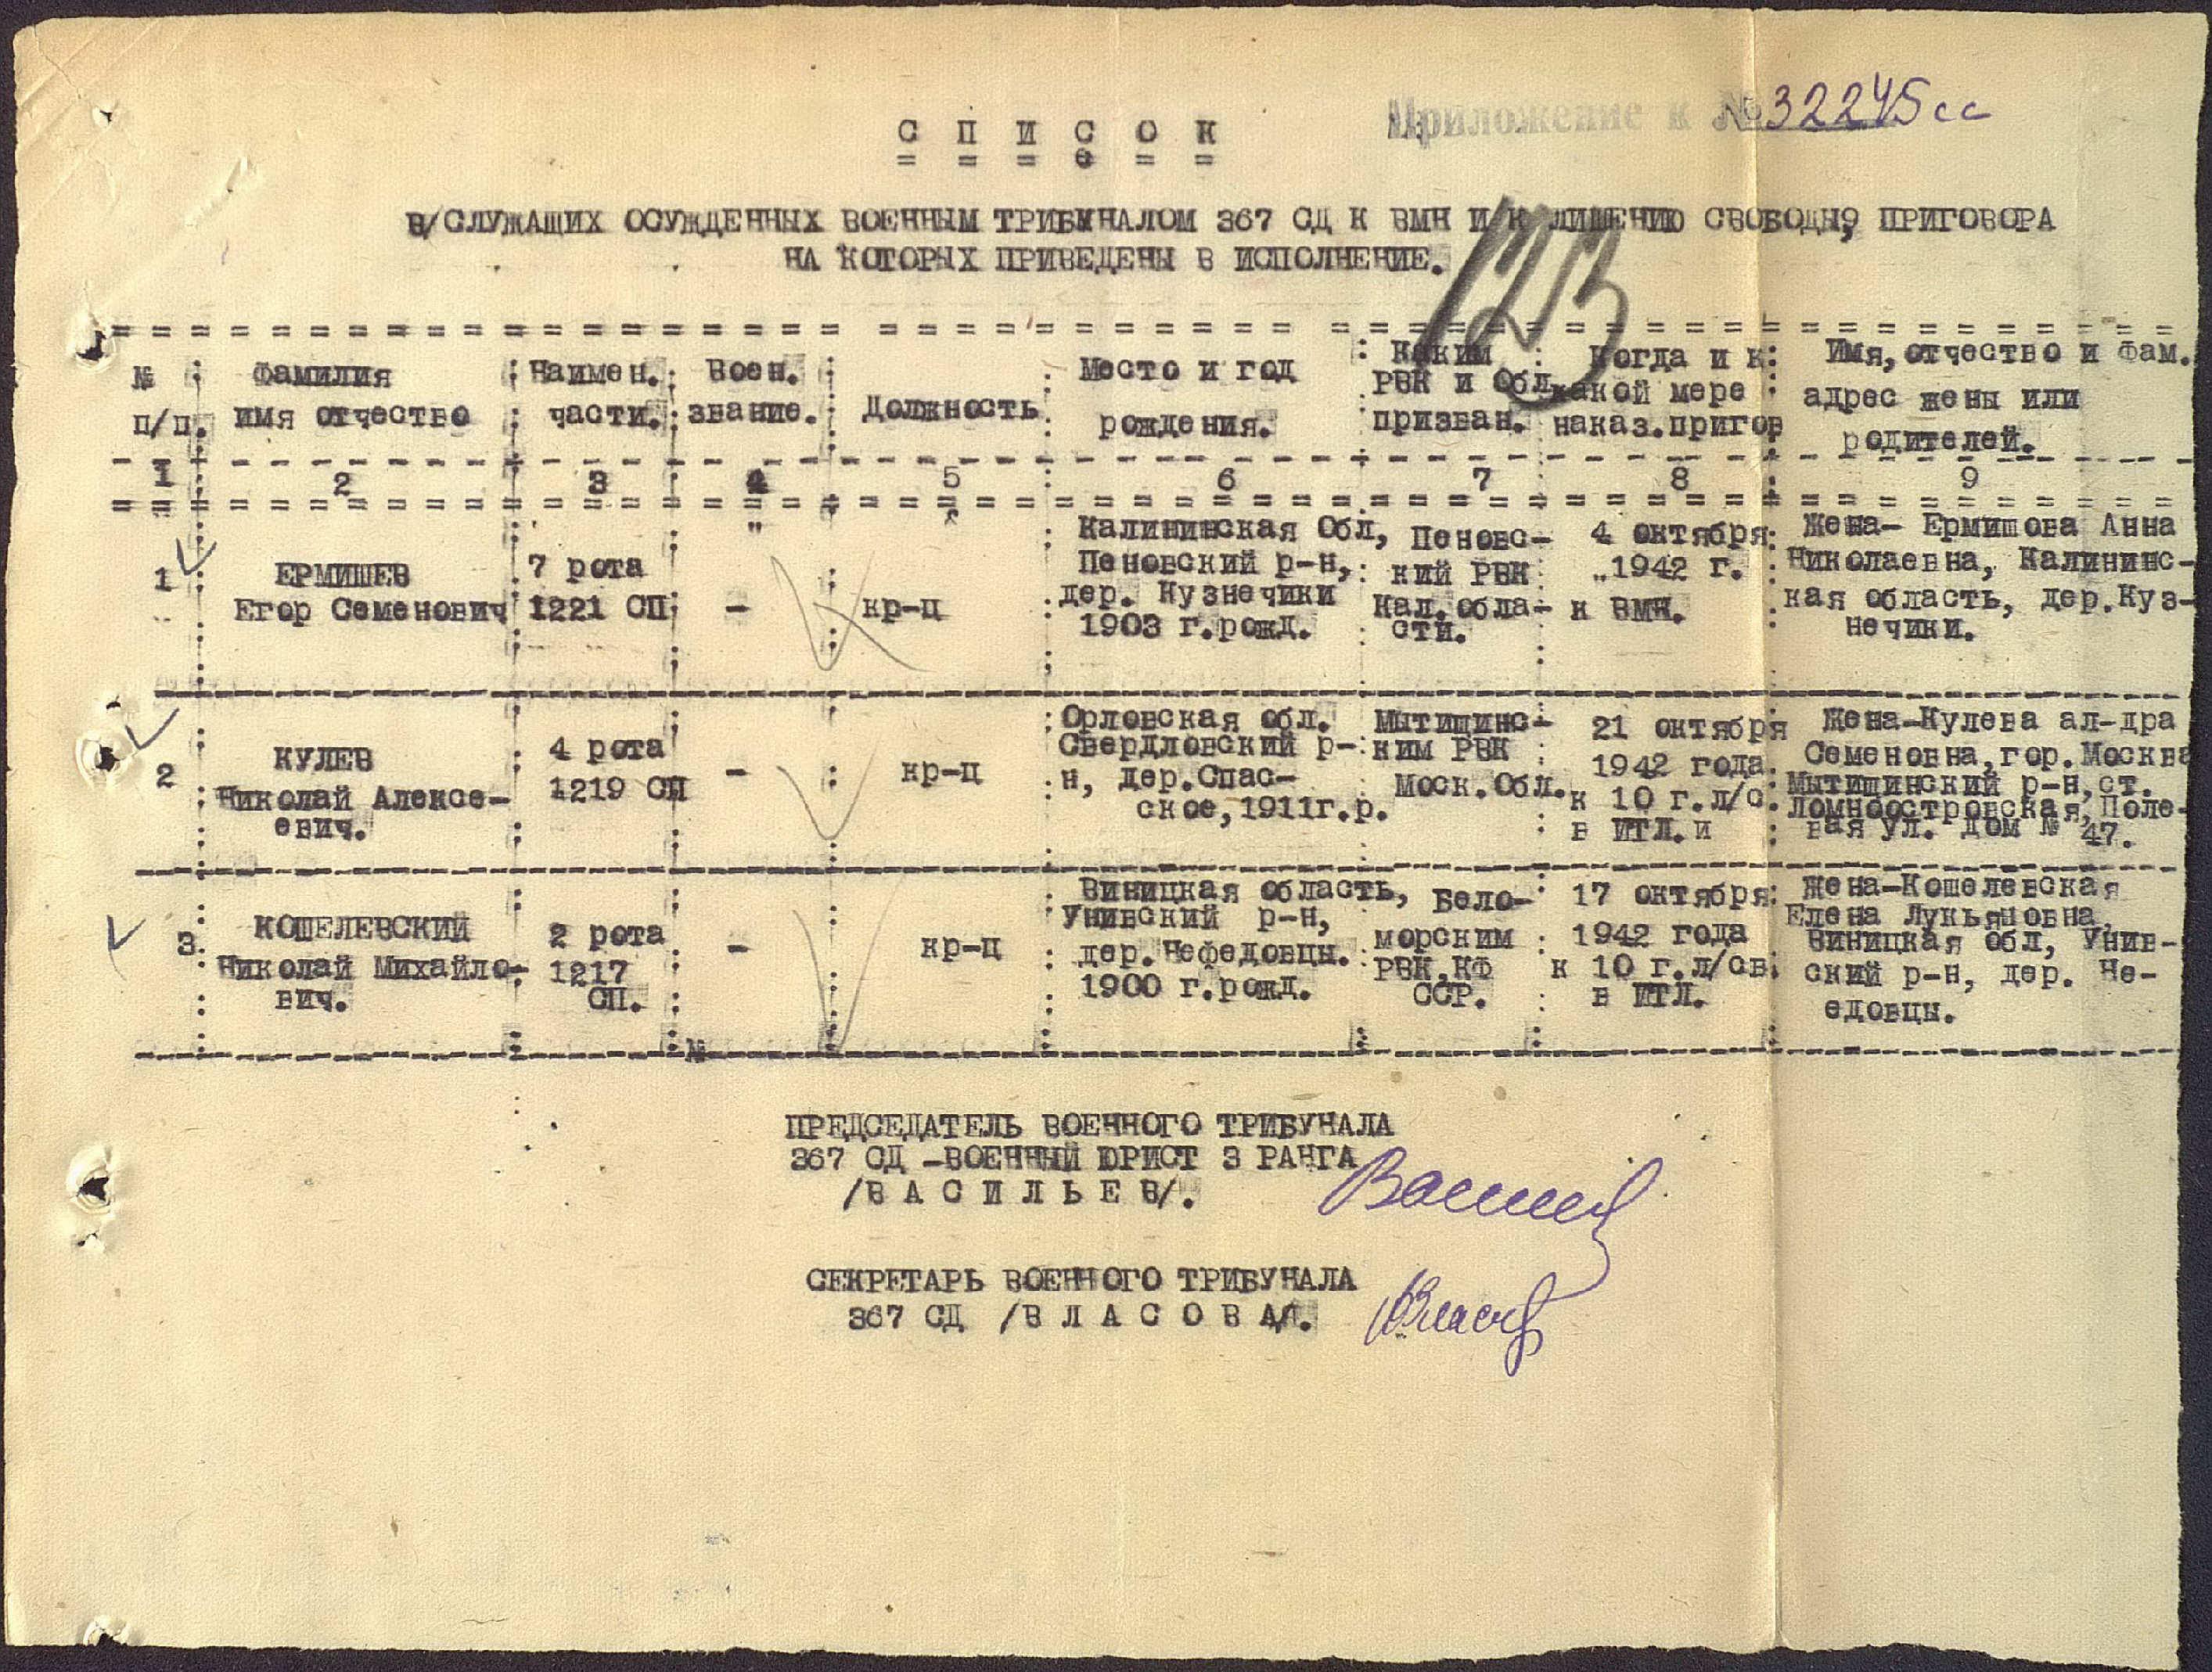 Приложение к № 32245сс
С П И С О К
В/СЛУЖАЩИХ ОСУЖДЕННЫХ ВОЕННЫМ ТРИБУНАЛОМ 367 СД К ВМН И К ЛИШЕНИЮ СВОБОДЫ, ПРИГОВОРА
НА КОТОРЫХ ПРИВЕДЕНЫ В ИСПОЛНЕНИЕ.
123
№ п/п.
Фамилия
имя отчество
Наимен.
части.
Воен.
звание.
Должность
Место и год
рождения.
Каким
РВК и Обл
призван.
Когда и к
какой мере
наказ.пригов
Имя, отчество и фам.
адрес жены или
родителей.
1 2 3 4 5 6 7 8 9
1
ЕРМИШЕВ
Егор Семенович
7 рота
1221 СП
-
кр-ц
Калининская Обл,
Пеновский р-н,
дер. Кузнечики
1903 г.рожд.
Пеновс-
кий РВК
Кал.обла-
сти.
4 октября
1942 г.
к ВМН.
Жена- Ермишова Анна
Николаевна, Калининс-
кая область, дер.Куз-
нечики.
2
КУЛЕВ
Николай Алексе-
евич.
4 рота
1219 СП
-
кр-ц
Орловская обл.
Свердловский р-
н, дер.Спас-
ское,1911г.р.
Мытищинс-
ким РВК
Моск.Обл.
21 октября
1942 года
к 10 г.л/с.
в ИТЛ. и
Жена-Кулева ал-дра
Семеновна,гор.Москва
Мытищинский р-н,ст.
Ломноостровская,Поле-
вая ул. дом № 47.
3.
КОШЕЛЕВСКИЙ
Николай Михайло-
вич.
2 рота
1217
СП.
-
кр-ц
Виницкая область,
Унивский р-н,
дер.Нефедовцы.
1900 г.рожд.
Бело-
морским
РВК,КФ
ССР.
17 октября
1942 года
к 10 г.л/св.
в ИТЛ.
Жена-Кошелевская
Елена Лукьяновна,
Виницкая обл, Унив-
ский р-н, дер. Не-
едовцы.
ПРЕДСЕДАТЕЛЬ ВОЕННОГО ТРИБУНАЛА
367 СД -ВОЕННЫЙ ЮРИСТ 3 РАНГА
/В А С И Л Ь Е В/.
СЕКРЕТАРЬ ВОЕННОГО ТРИБУНАЛА
367 СД /В Л А С О В А/.